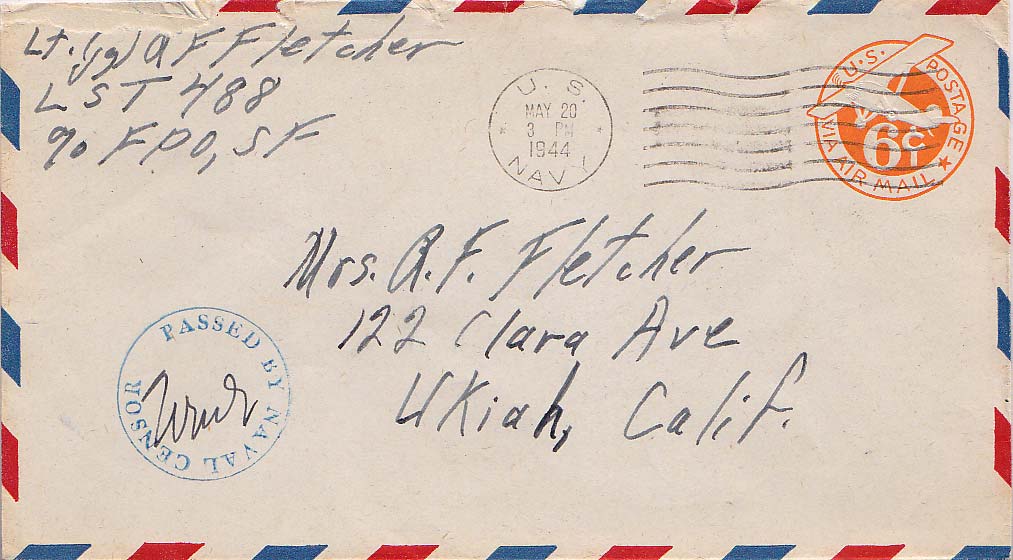 Lt. (jg) A F Fletcher
LST 488
% FPO, SF
U. S.
MAY 20
3 PM
1944
NAVY
U.S. POSTAGE
6¢
VIA AIR MAIL
Mrs. A. F. Fletcher
122 Clara Ave
Ukiah, Calif.
PASSED BY NAVAL CENSOR